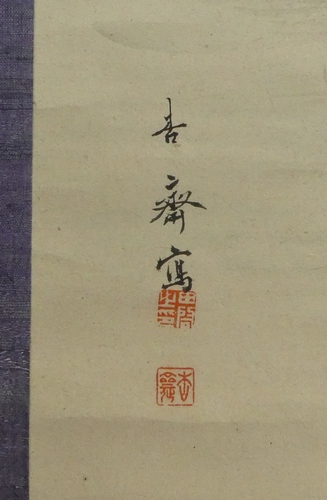 杏齋寫
杏齋